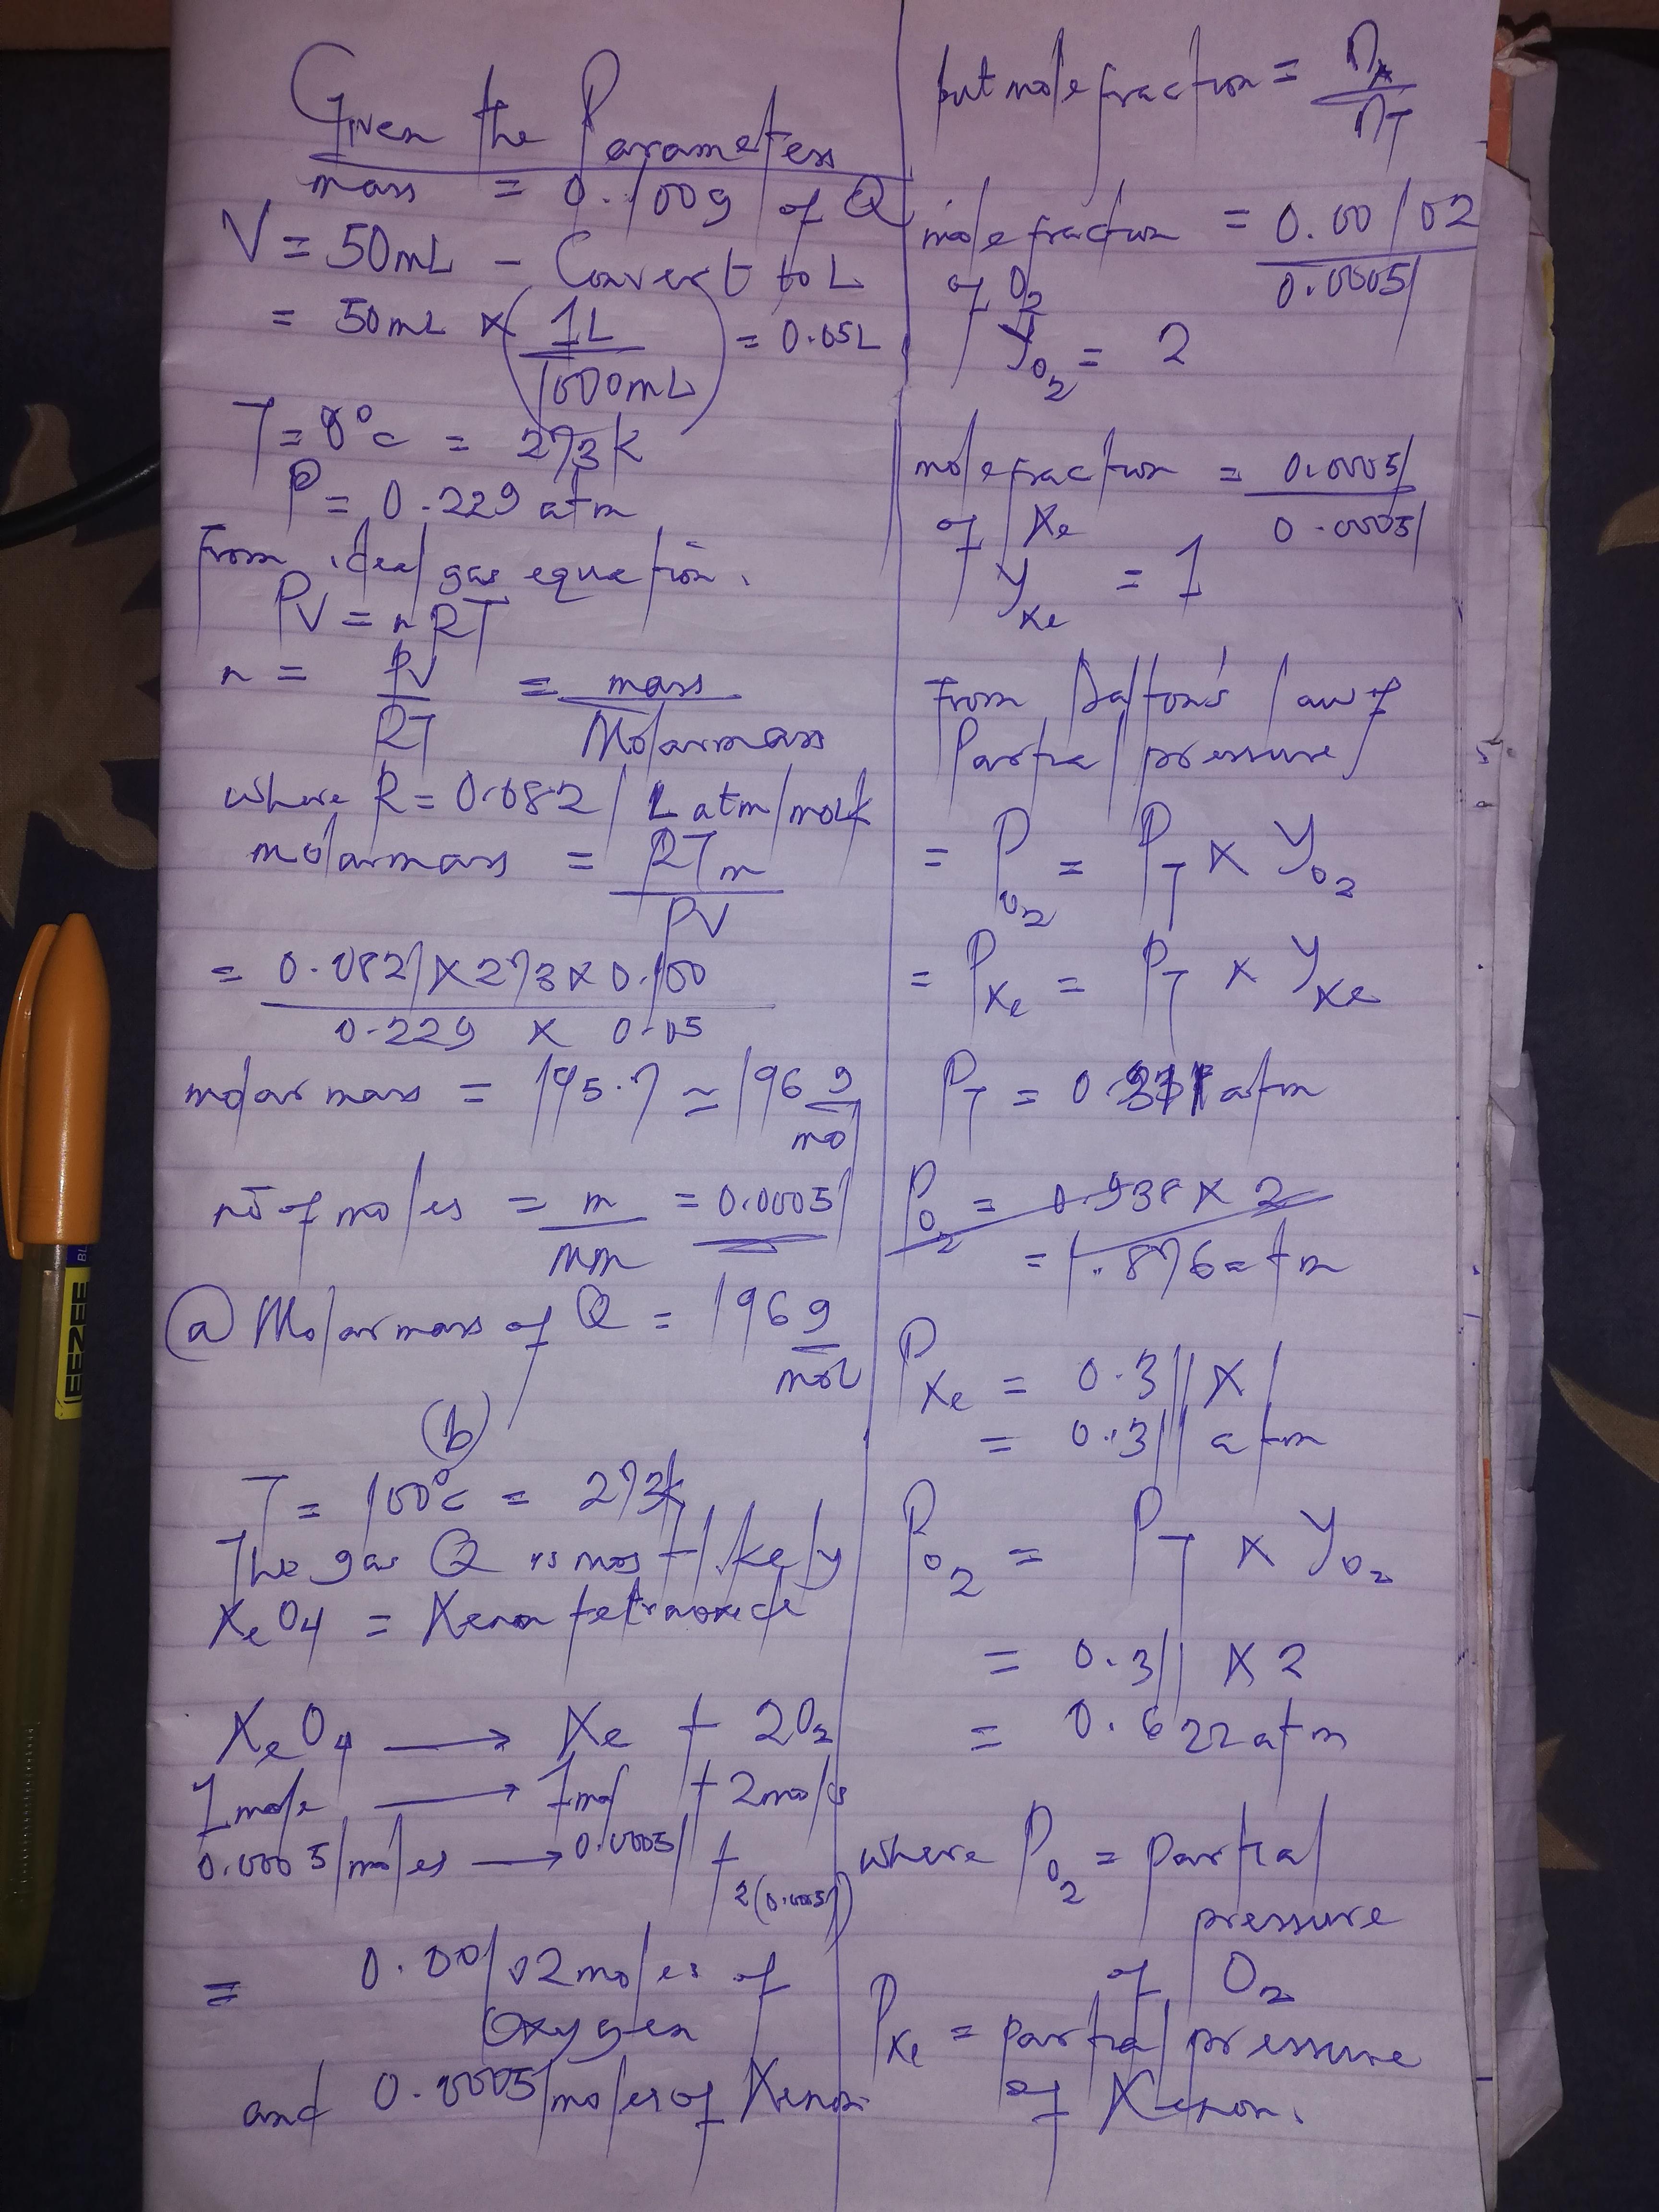 Given the Parameters
mass = 0.100g of Q
V = 50mL - Convert to L
= 50mL × (1L / 1000mL) = 0.05L
T = 0°c = 273k
P = 0.229 atm
From ideal gas equation.
PV = nRT
n = PV / RT = mass / Molarmass
where R = 0.0821 L atm/molk
molarmass = RTm / PV
= 0.0821 × 273 × 0.100 / 0.229 × 0.05
molar mass = 195.7 ≃ 196 g/mol
no of moles = m / Mm = 0.00051
(a) Molar mass of Q = 196 g/mol
(b)
T = 100°c = 273k
The gas Q is most likely
XeO4 = Xenon tetraoxide
XeO4 → Xe + 2O2
1 mole → 1mol + 2moles
0.00051moles → 0.00051 + 2(0.00051)
= 0.00102 moles of
Oxygen
and 0.00051 moles of Xenon.
but mole fraction = nx / nT
mole fraction of O2 = 0.00102 / 0.00051
yO2 = 2
mole fraction of Xe = 0.00051 / 0.00051
yXe = 1
From Dalton's law of
Partial pressure
= PO2 = PT × yO2
= PXe = PT × yXe
PT = atm
PO2 = 0.938 × 2
= 1.876atm
PXe = 0.311 × 1
= 0.311 atm
PO2 = PT × yO2
= 0.311 × 2
= 0.622atm
where PO2 = partial
pressure
of O2
PXe = partial pressure
of Xenon.
EEZEE
BL